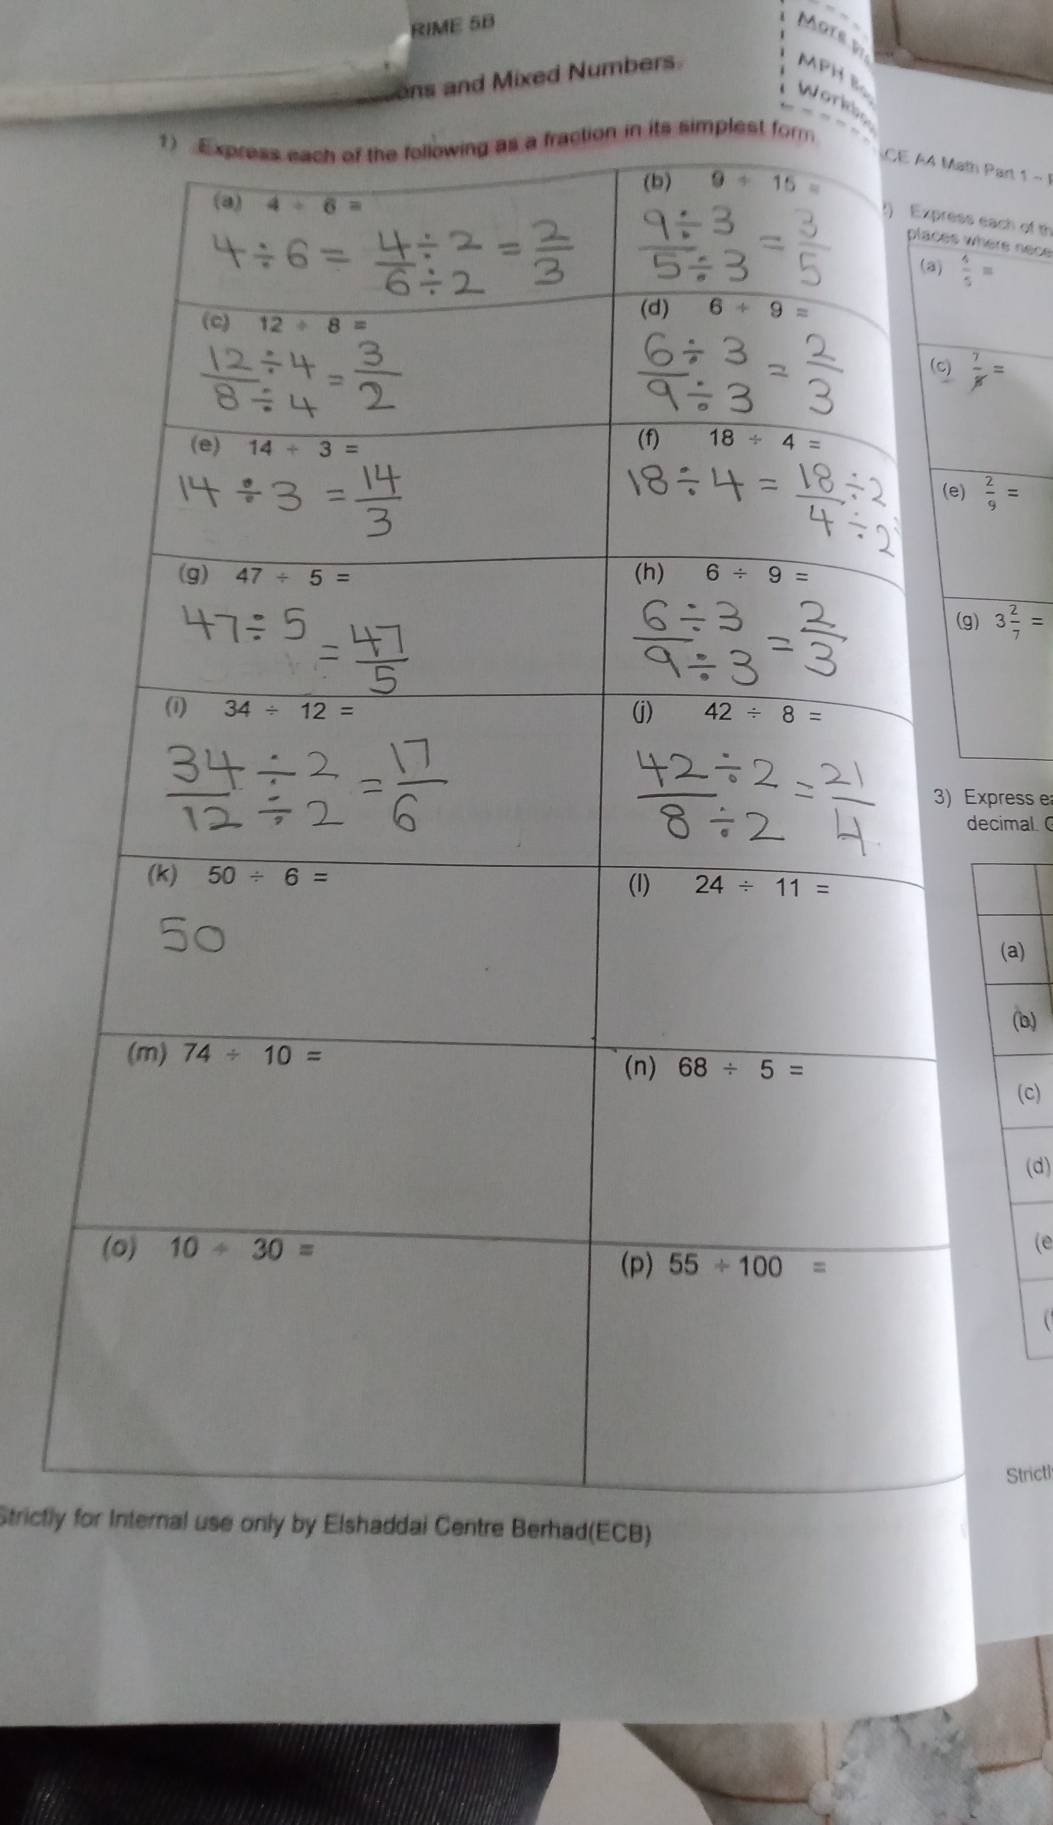 RIME 5B
and Mixed Numbers.
1) Express each of the following as a fraction in its simplest form
(a) 4 ÷ 6 =
4 ÷ 6 = 4/6 ÷ 2/÷ 2 = 2/3
(b) 9 ÷ 15 =
9 ÷ 3 / 5 ÷ 3 = 3/5
(c) 12 ÷ 8 =
12 ÷ 4 / 8 ÷ 4 = 3/2
(d) 6 ÷ 9 =
6 ÷ 3 / 9 ÷ 3 = 2/3
(e) 14 ÷ 3 =
14 ÷ 3 = 14/3
(f) 18 ÷ 4 =
18 ÷ 4 = 18 ÷ 2 / 4 ÷ 2
(g) 47 ÷ 5 =
47 ÷ 5 = 47/5
(h) 6 ÷ 9 =
6 ÷ 3 / 9 ÷ 3 = 2/3
(i) 34 ÷ 12 =
34 ÷ 2 / 12 ÷ 2 = 17/6
(j) 42 ÷ 8 =
42 ÷ 2 / 8 ÷ 2 = 21/4
(k) 50 ÷ 6 =
50
(l) 24 ÷ 11 =
(m) 74 ÷ 10 =
(n) 68 ÷ 5 =
(o) 10 ÷ 30 =
(p) 55 ÷ 100 =
Strictly for Internal use only by Elshaddai Centre Berhad(ECB)
More
MPH
CE A4 Math Part 1 -
) Express each of
places where
(a)
(c)
(e) 2/9 =
(g) 3 2/7 =
3) Express
decimal.
(a)
(b)
(c)
(d)